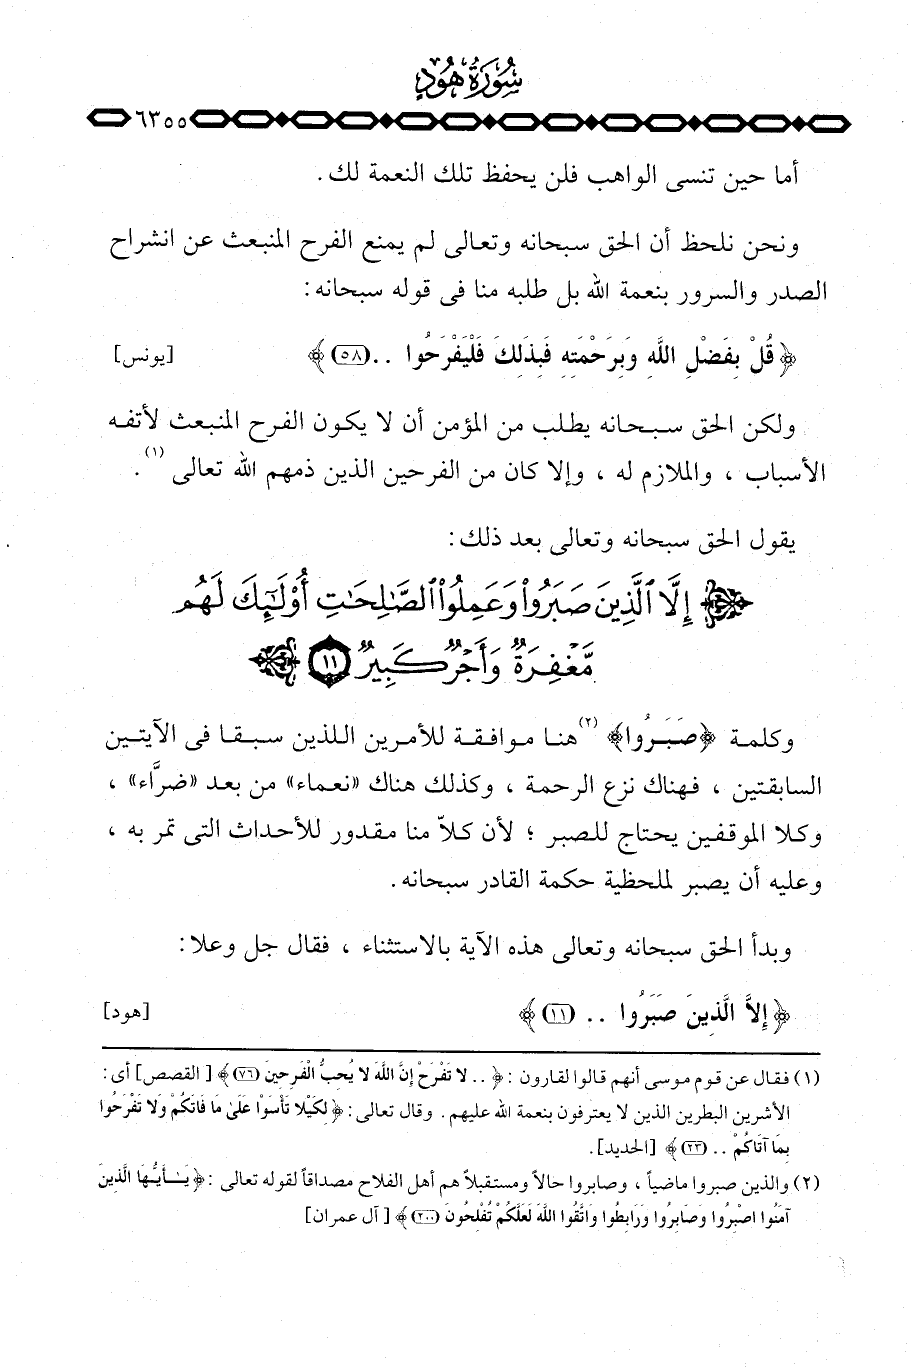 سُورَةُ هُودٍ
٦٣٥٥
أما حين تنسى الواهب فلن يحفظ تلك النعمة لك.
ونحن نلحظ أن الحق سبحانه وتعالى لم يمنع الفرح المنبعث عن انشراح
الصدر والسرور بنعمة الله بل طلبه منا فى قوله سبحانه:
﴿ قُلْ بِفَضْلِ اللَّهِ وَبِرَحْمَتِهِ فَبِذَلِكَ فَلْيَفْرَحُوا .. (٥٨) ﴾ [يونس]
ولكن الحق سبحانه يطلب من المؤمن أن لا يكون الفرح المنبعث لأتفه
الأسباب ، والملازم له ، وإلا كان من الفرحين الذين ذمهم الله تعالى (١) .
يقول الحق سبحانه وتعالى بعد ذلك:
﴿ إِلَّا ٱلَّذِينَ صَبَرُوا۟ وَعَمِلُوا۟ ٱلصَّـٰلِحَـٰتِ أُو۟لَـٰٓئِكَ لَهُم
مَّغْفِرَةٌ وَأَجْرٌ كَبِيرٌ ١١ ﴾
وكلمة ﴿صَبَرُوا﴾ (٢) هنا موافقة للأمرين اللذين سبقا فى الآيتين
السابقتين ، فهناك نزع الرحمة ، وكذلك هناك «نعماء» من بعد «ضرَّاء» ،
وكلا الموقفين يحتاج للصبر ؛ لأن كلاّ منا مقدور للأحداث التى تمر به ،
وعليه أن يصبر لملحظية حكمة القادر سبحانه.
وبدأ الحق سبحانه وتعالى هذه الآية بالاستثناء ، فقال جل وعلا:
﴿ إِلاَّ الَّذِينَ صَبَرُوا .. (١١) ﴾ [هود]
(١) فقال عن قوم موسى أنهم قالوا لقارون : ﴿ .. لا تَفْرَحْ إِنَّ اللَّهَ لا يُحِبُّ الْفَرِحِينَ (٧٦) ﴾ [ القصص] أى :
الأشرين البطرين الذين لا يعترفون بنعمة الله عليهم . وقال تعالى : ﴿ لِكَيْلا تَأْسَوْا عَلَىٰ مَا فَاتَكُمْ وَلا تَفْرَحُوا
بِمَا آتَاكُمْ .. (٢٣) ﴾ [الحديد].
(٢) والذين صبروا ماضياً ، وصابروا حالاً ومستقبلاً هم أهل الفلاح مصداقاً لقوله تعالى : ﴿ يَـٰأَيُّهَا الَّذِينَ
آمَنُوا اصْبِرُوا وَصَابِرُوا وَرَابِطُوا وَاتَّقُوا اللَّهَ لَعَلَّكُمْ تُفْلِحُونَ (٢٠٠) ﴾ [ آل عمران]